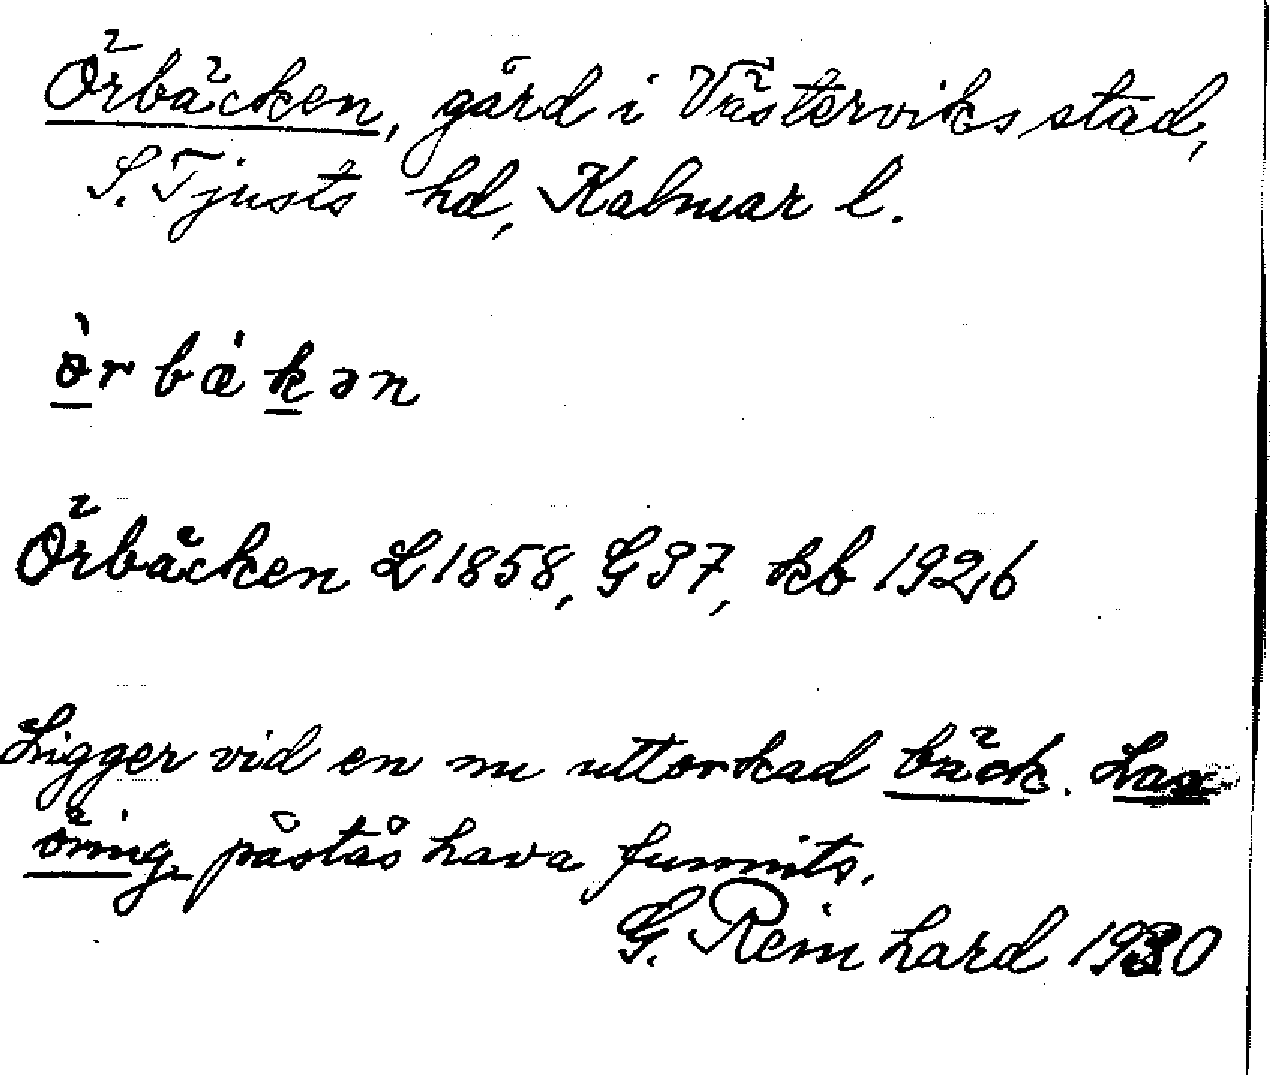 Örbäcken, gård i Västerviks stad,
S. Tjusts hd, Kalmar l.
ò̱rbá̈ḵən
Örbäcken L 1858, G 37, kb 1926
Ligger vid en nu uttorkad bäck. Lax-
öring påstås hava funnits.
G. Reinhard 1930